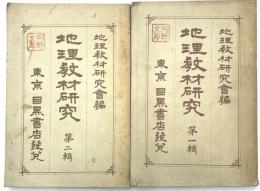 地理教材研究會編
地理教材研究
第一輯
東京 目黑書店發兌
地理教材研究會編
地理教材研究
第二輯
東京 目黑書店發兌